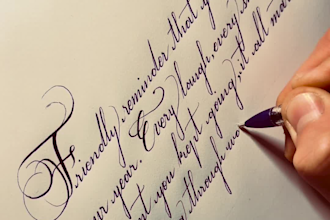 Friendly reminder that y
ur year. Every laugh, every s
t you kept going, it all ma
through wo